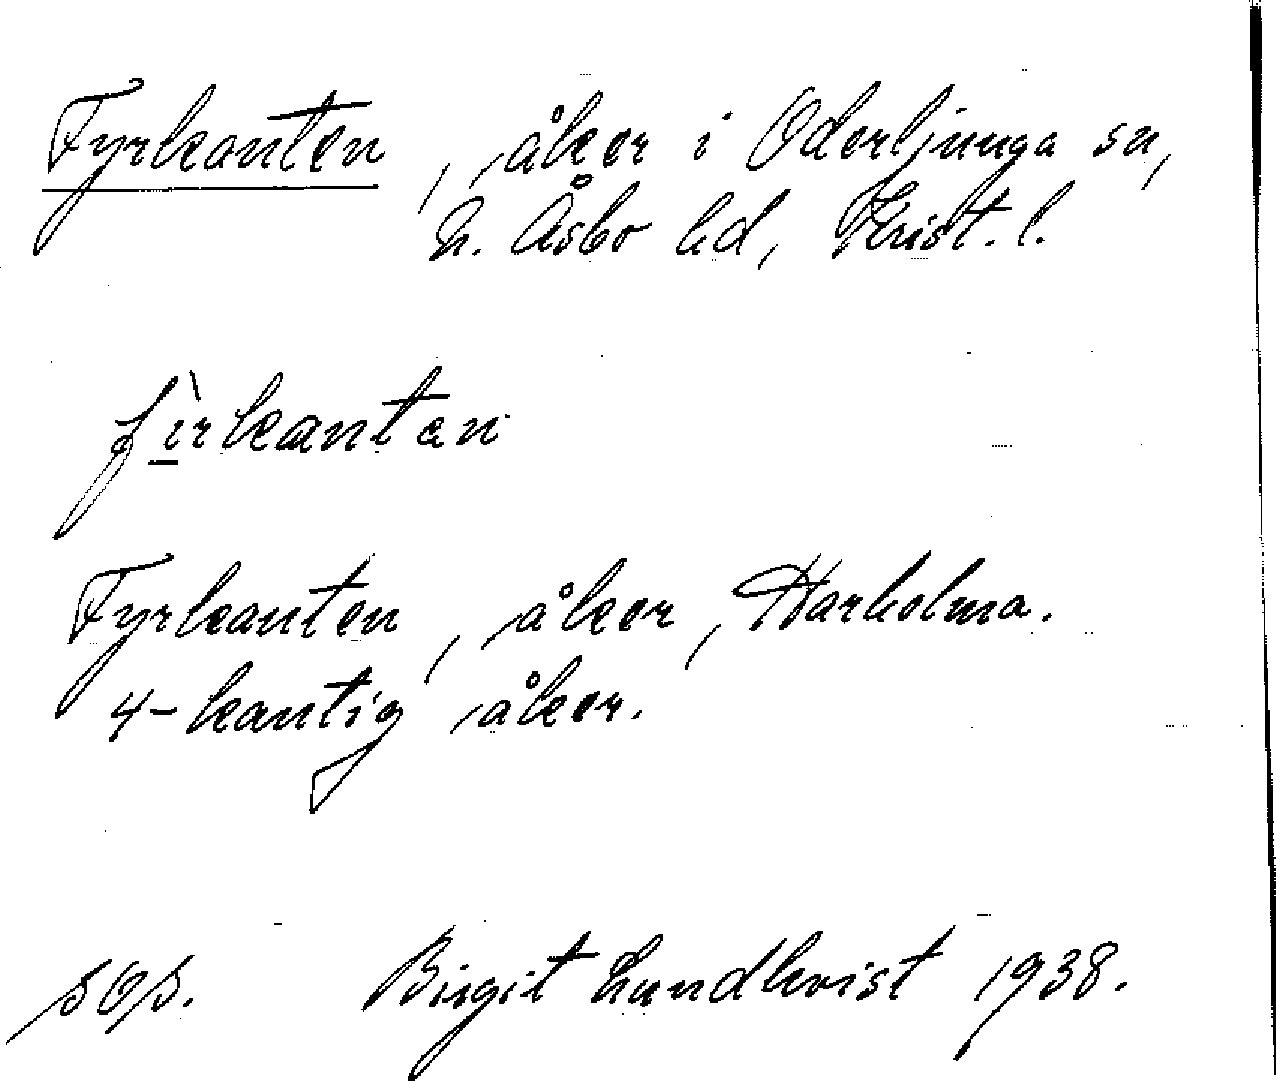 Fyrkanten, åker i Oderljunga sn,
N. Åsbo hd, Krist. l.
fìrkantan
Fyrkanten, åker, Harholma.
4-kantig åker.
Birgit Lundkvist 1938.